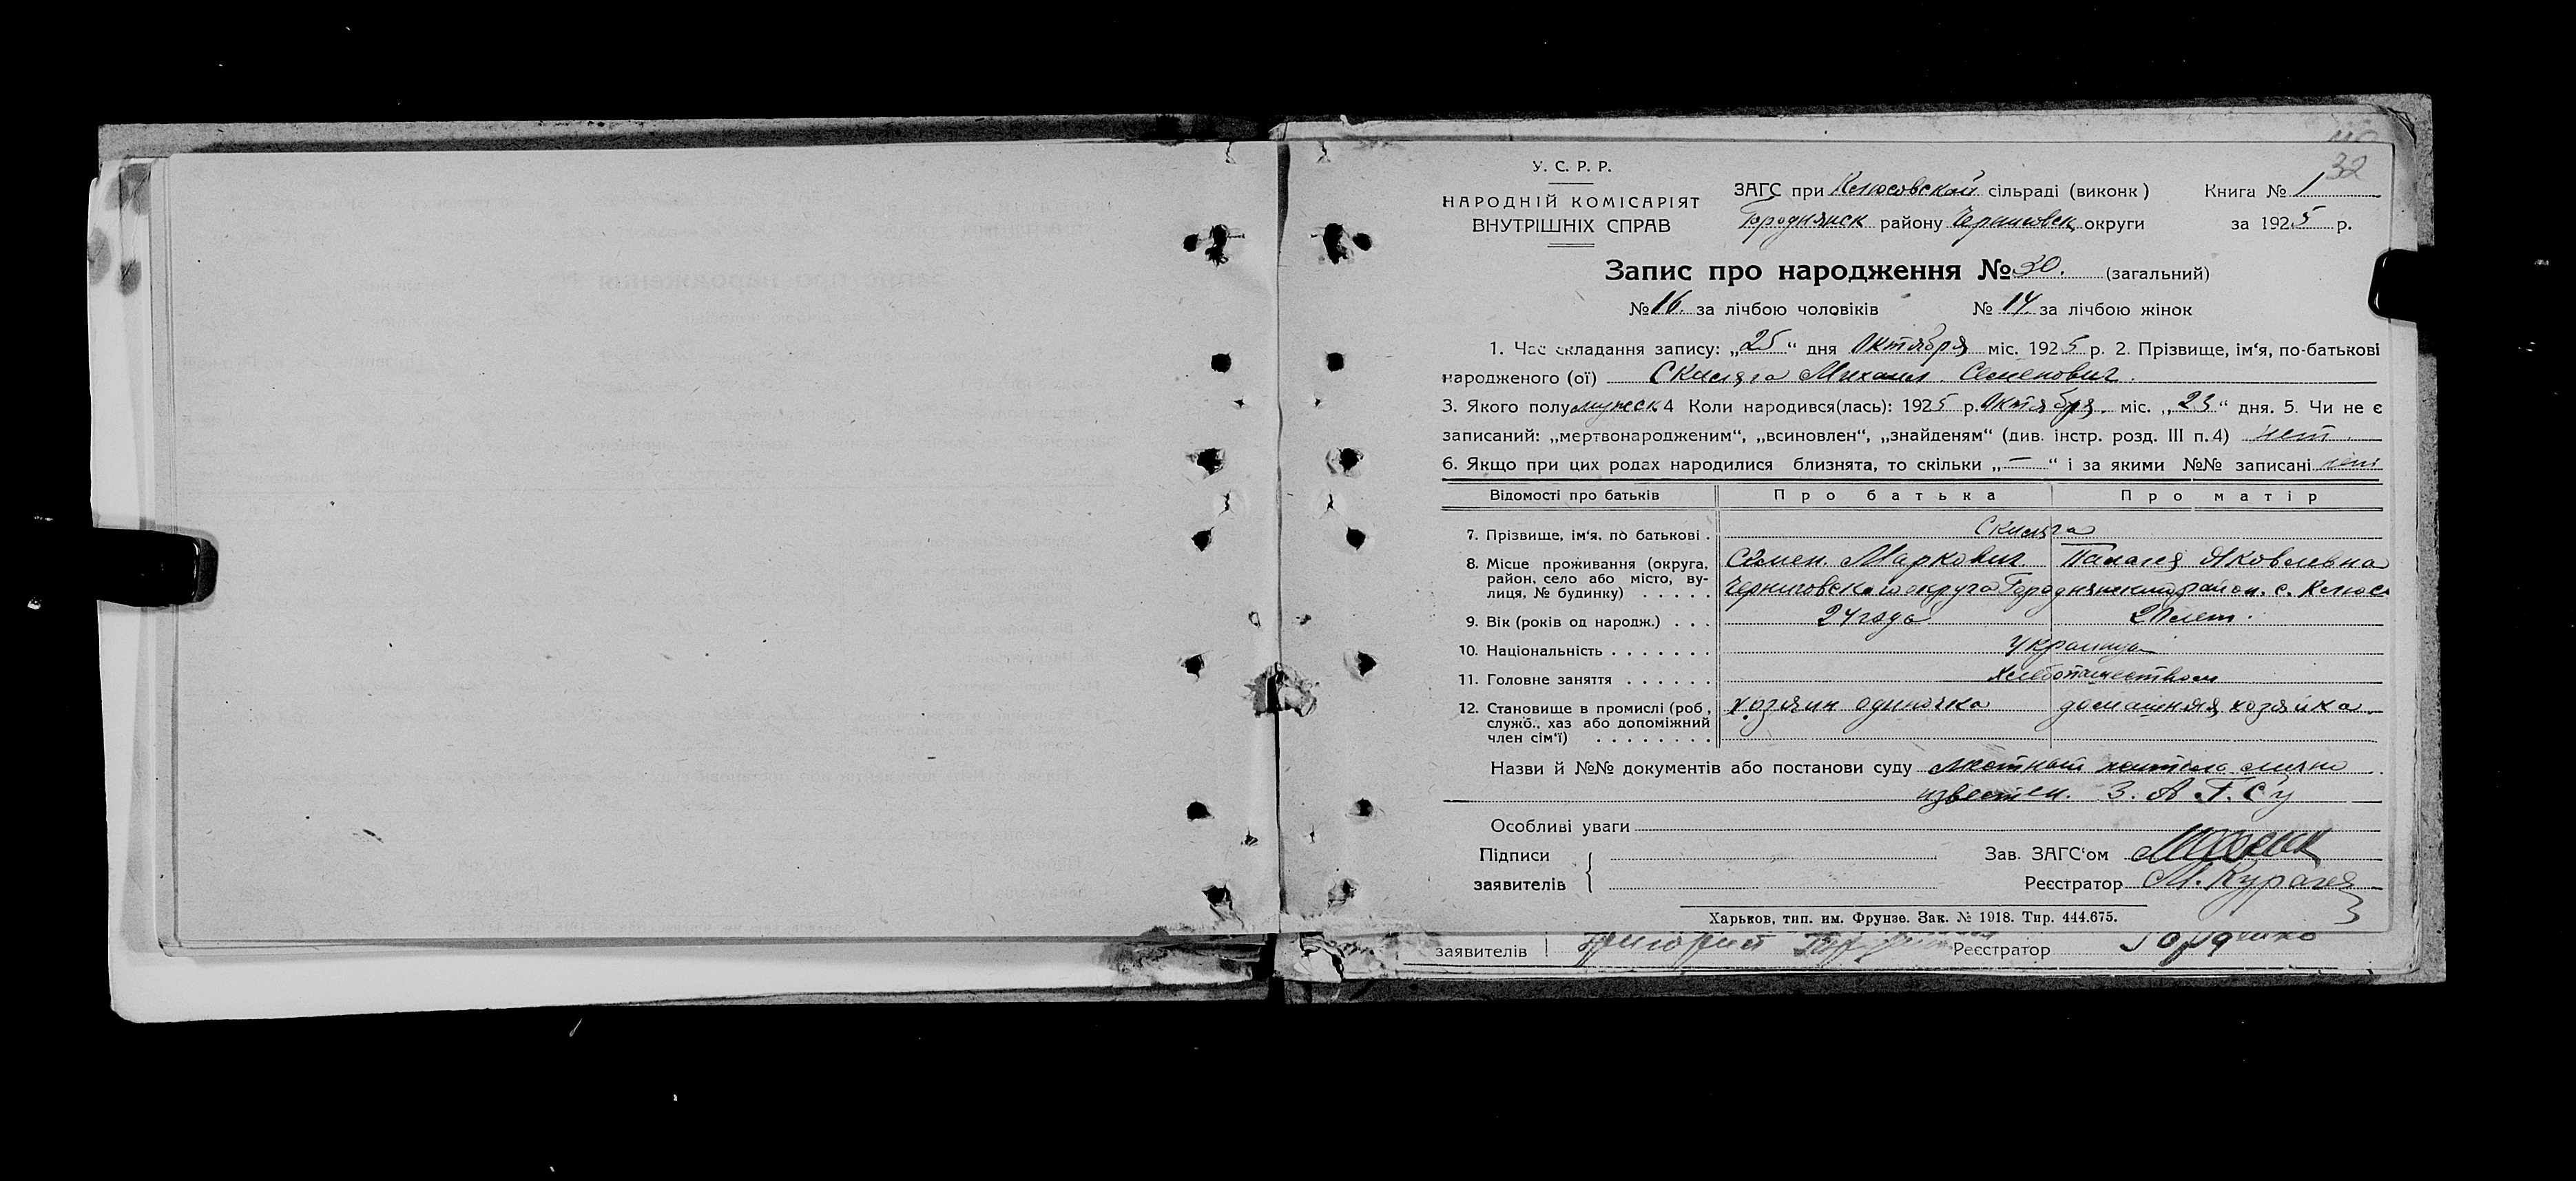 32
У. С. Р. Р.
НАРОДНІЙ КОМІСАРІЯТ
ВНУТРІШНІХ СПРАВ
ЗАГС при Клюсовской сільраді (виконк) Книга № 1
Городнянск району Черниговск округи за 1925 р.
Запис про народження № 30. (загальний)
№ 16. за лічбою чоловіків № 14. за лічбою жінок
1. Час складання запису: „25“ дня Октября міс. 1925 р. 2. Прізвище, ім‘я, по-батькові
народженого (ої) Скиляга Михаил Семенович.
3. Якого полу мужеск 4 Коли народився(лась): 1925 р. Октября міс. „23“ дня. 5. Чи не є
записаний: „мертвонародженим“, „всиновлен“, „знайденям“ (див. інстр. розд. III п. 4) нет.
6. Якщо при цих родах народилися близнята, то скільки „—“ і за якими №№ записані нет
Відомості про батьків Про батька Про матір
7. Прізвище, ім‘я, по батькові . Скиляга
Семен. Маркович. Палагея Яковлевна
8. Місце проживання (округа,
район, село або місто, ву-
лиця, № будинку) . . . . . Черниговского округа Городнянского район. с. Клюсы
9. Вік (років од народж.) . . . 24 года лет.
10. Національність . . . . . . . Украинцы
11. Головне заняття . . . . . . Хлебопашеством
12. Становище в промислі (роб, хозяин одиночка домашняя хозяйка.
служб., хаз або допоміжний
член сім‘ї) . . . . . . . .
Назви й №№ документів або постанови суду местный житель лично
известен. З. А Г. С'у
Особливі уваги
Підписи
заявителів
Зав. ЗАГС‘ом
Реєстратор М. Курагея
Харьков, тип. им. Фрунзе. Зак. № 1918. Тир. 444.675.
заявителів Григорий Реєстратор